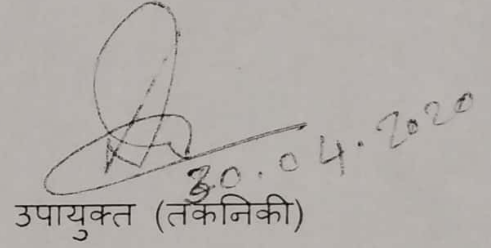 30.04.2020
उपायुक्त (तकनिकी)